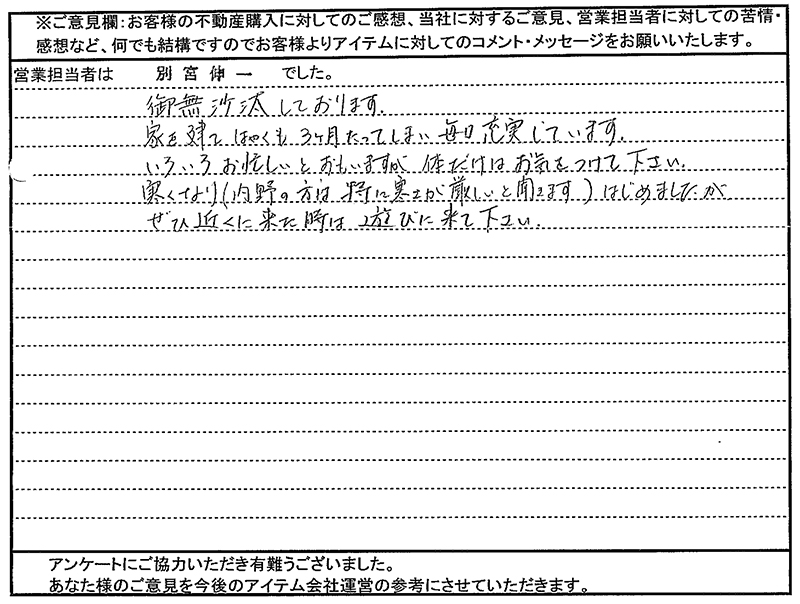 ※ご意見欄：お客様の不動産購入に対してのご感想、当社に対するご意見、営業担当者に対しての苦情・
感想など、何でも結構ですのでお客様よりアイテムに対してのコメント・メッセージをお願いいたします。
営業担当者は 別宮伸一 でした。
御無沙汰しております。
家を建てはやくも3ヶ月たってしまい毎日充実しています。
いろいろお忙しいとおもいますが体だけはお気をつけて下さい。
寒くなり(内野の方は特に寒さが厳しいと聞きます)はじめましたが
ぜひ近くに来た時は遊びに来て下さい。
アンケートにご協力いただき有難うございました。
あなた様のご意見を今後のアイテム会社運営の参考にさせていただきます。